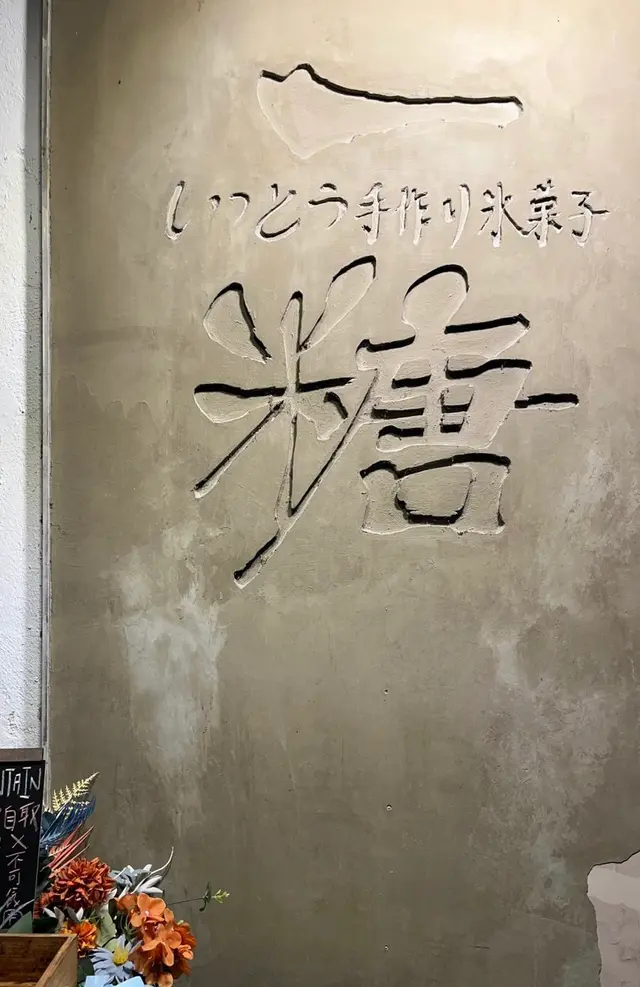 一
いっとう手作り氷菓子
糖
自取
不可